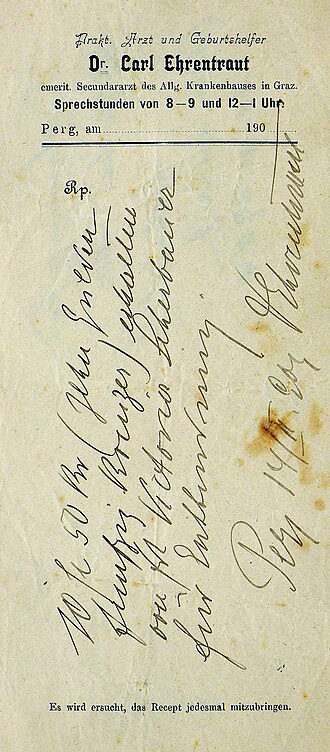 Prakt. Arzt und Geburtshelfer
Dr. Carl Ehrentraut
emerit. Secundararzt des Allg. Krankenhauses in Graz.
Sprechstunden von 8–9 und 12–1 Uhr.
Perg, am 190
Rp.
10 fl 50 Kr (Zehn Gulden
fünfzig Kreuzer) erhalten
von Victoria
für Entbindung
Perg 14/ DrEhrentraut
Es wird ersucht, das Recept jedesmal mitzubringen.